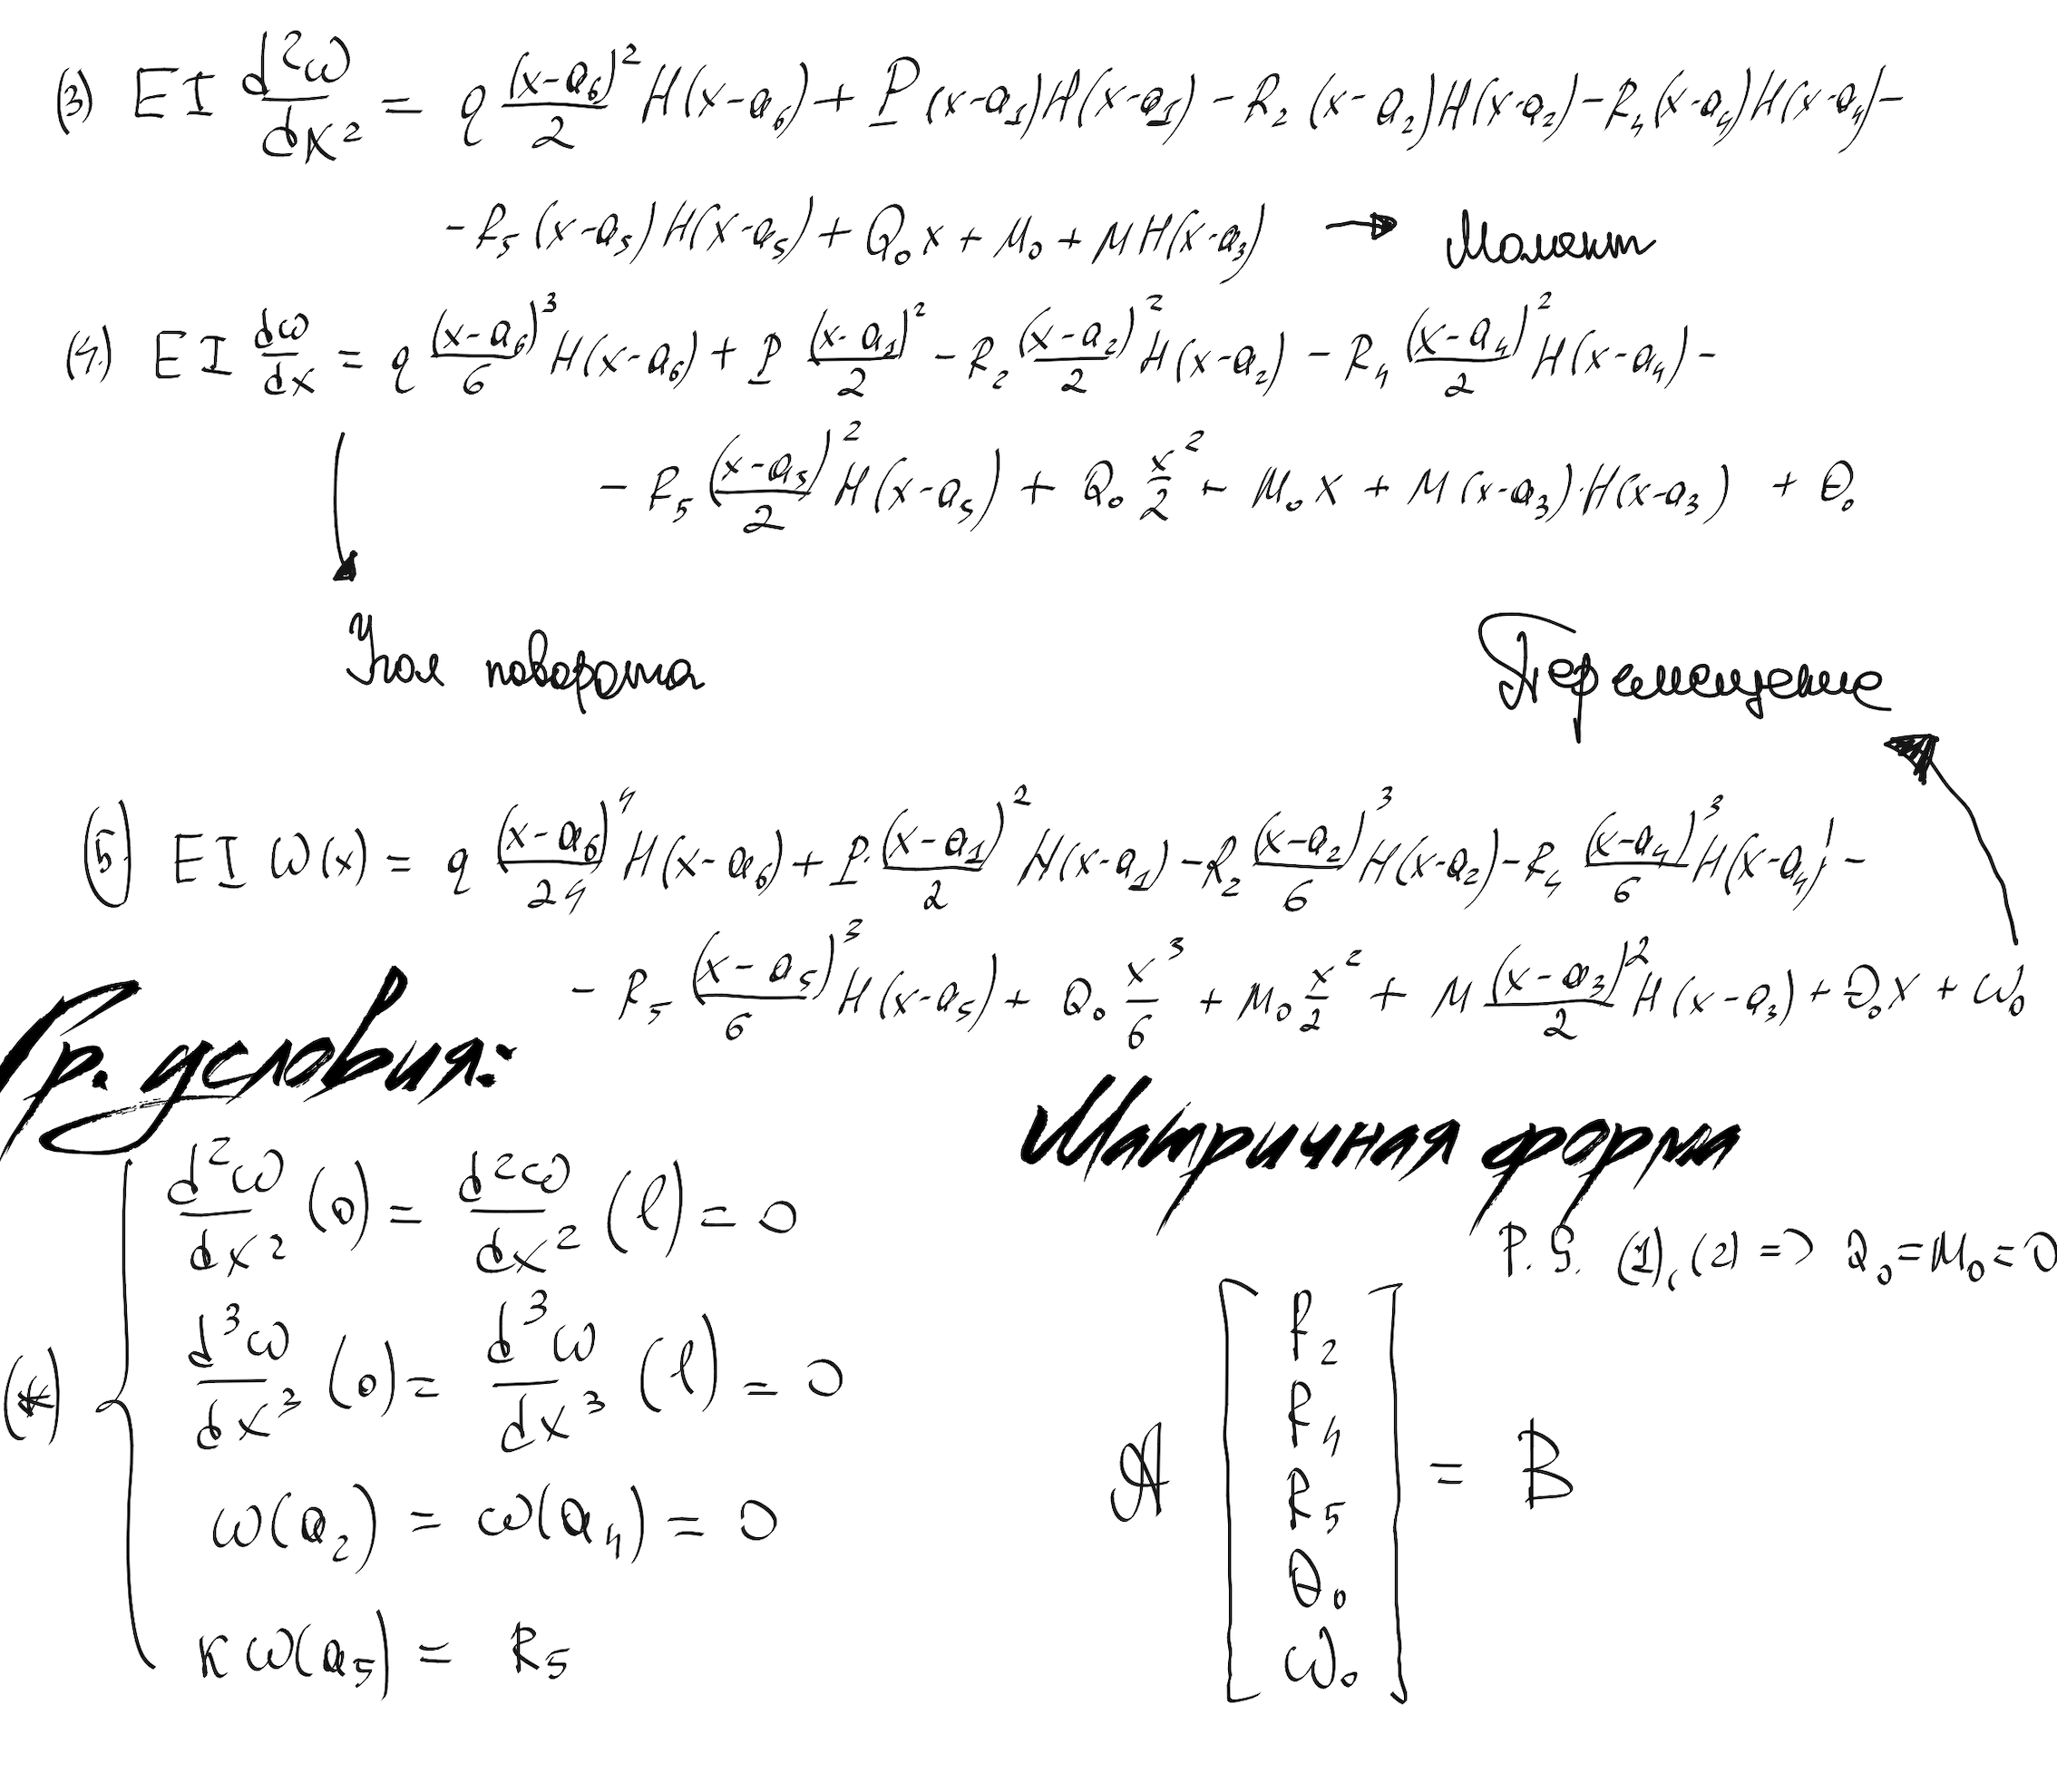 (3) EI d²ω/dx² = q (x-a₆)²/2 H(x-a₆) + P (x-a₁)H(x-a₁) - R₂ (x-a₂)H(x-a₂) - R₄(x-a₄)H(x-a₄) -
- R₅ (x-a₅)H(x-a₅) + Q₀x + M₀ + MH(x-a₃) → Момент
(4.) EI dω/dx = q (x-a₆)³/6 H(x-a₆) + P (x-a₁)²/2 - R₂ (x-a₂)²/2 H(x-a₂) - R₄ (x-a₄)²/2 H(x-a₄) -
- R₅ (x-a₅)²/2 H(x-a₅) + Q₀ x²/2 + M₀x + M(x-a₃)·H(x-a₃) + Θ₀
Угол поворота
Перемещение
(5.) EI ω(x) = q (x-a₆)⁴/24 H(x-a₆) + P·(x-a₁)²/2 H(x-a₁) - R₂ (x-a₂)³/6 H(x-a₂) - R₄ (x-a₄)³/6 H(x-a₄) -
- R₅ (x-a₅)³/6 H(x-a₅) + Q₀ x³/6 + M₀ x²/2 + M (x-a₃)²/2 H(x-a₃) + Θ₀x + ω₀
Гр. условия:
(*) d²ω/dx² (0) = d²ω/dx² (l) = 0
d³ω/dx³ (0) = d³ω/dx³ (l) = 0
ω(a₂) = ω(a₄) = 0
kω(a₅) = R₅
Матричная форма
P.S. (1), (2) => Q₀ = M₀ = 0
A [R₂
R₄
R₅
Θ₀
ω₀] = B